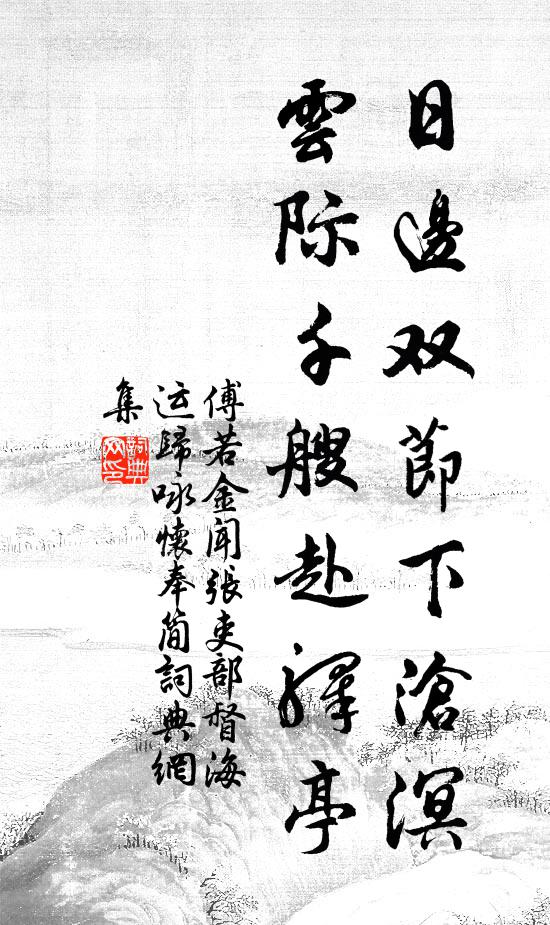 日邊双節下滄溟
雲際千艘赴驛亭
傅若金聞張吏部督海
运歸咏懷奉简詞典網
集